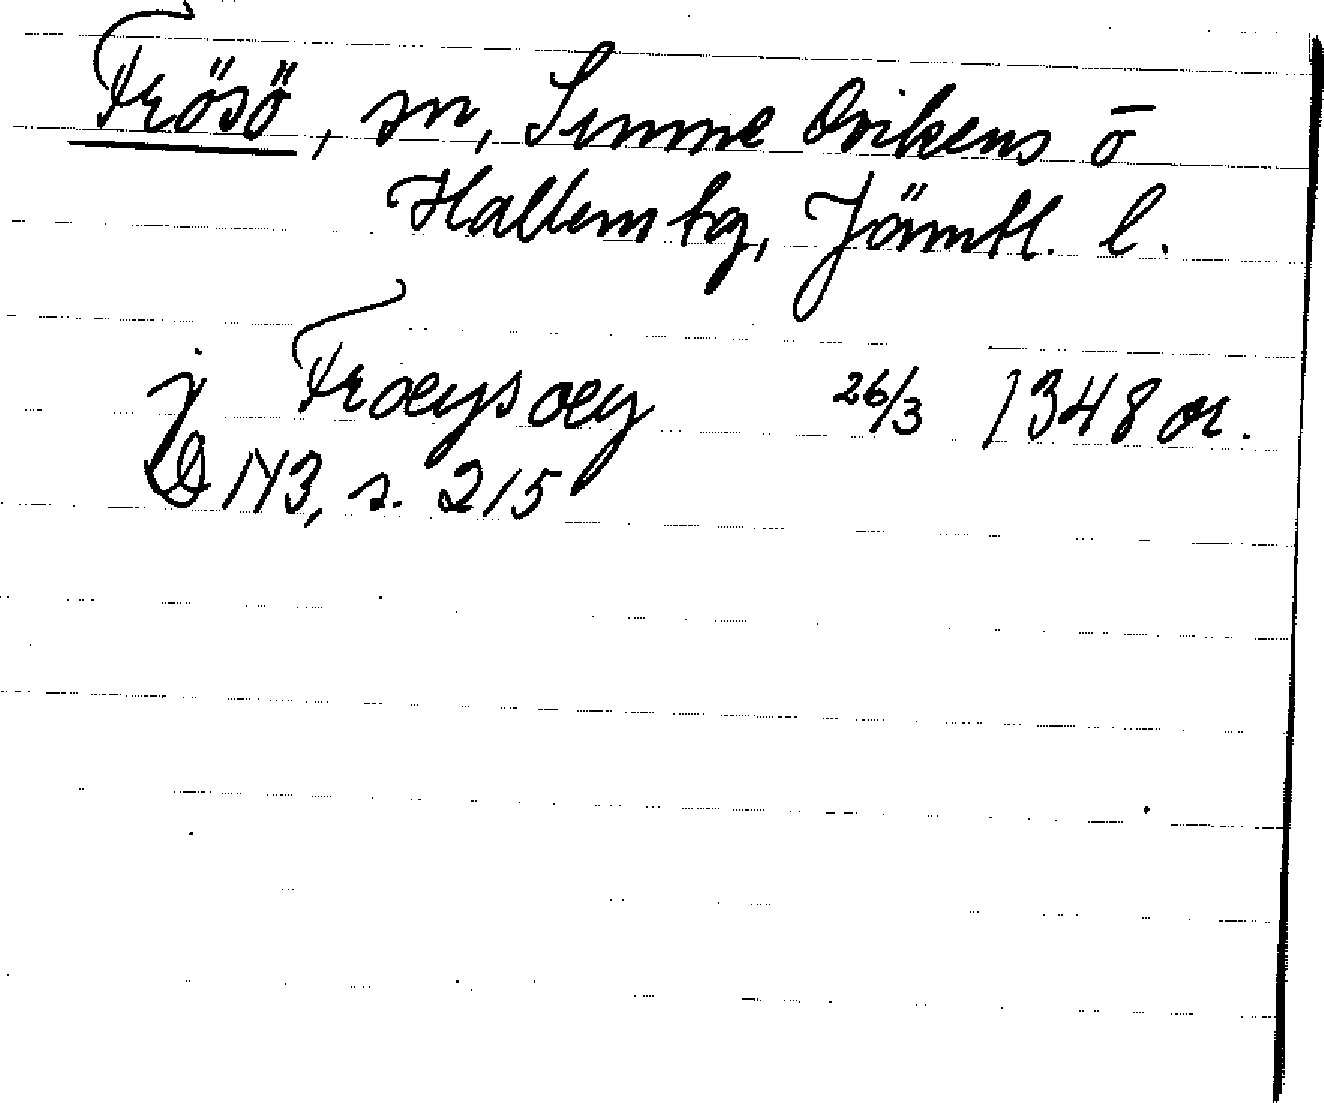 Frösö, sn, Sunne Ovikens o
Hallens tg, Jämtl. l.
j Frœysœy 26/3 1348 or.
D N3, s. 215